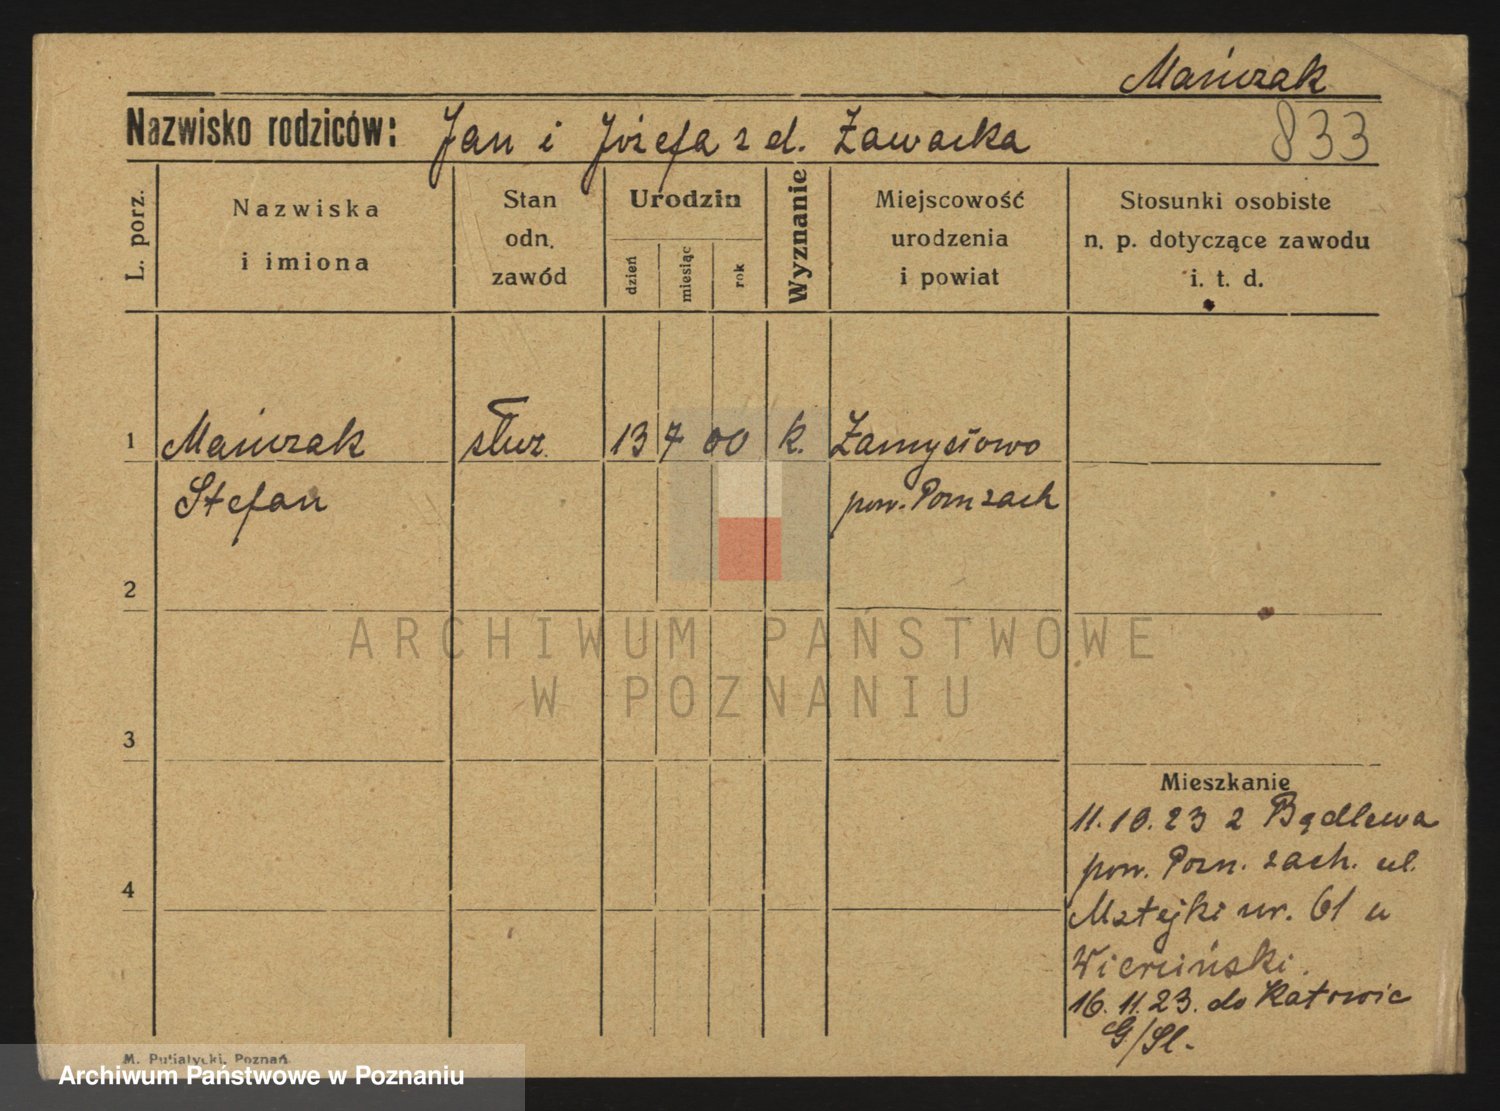 Mańczak
Nazwisko rodziców: Jan i Józefa z d. Zawacka 833
L. porz.
Nazwiska
i imiona
Stan
odn.
zawód
Urodzin
dzień
miesiąc
rok
Wyznanie
Miejscowość
urodzenia
i powiat
Stosunki osobiste
n. p. dotyczące zawodu
i. t. d.
1 Mańczak służ. 13 7 00 k. Zamysłowo
Stefan pow. Pozn zach
2
ARCHIWUM PAŃSTWOWE
W POZNANIU
3
Mieszkanie
11.10.23 z Bądlewa
pow. Pozn. zach. ul.
4
Matejki nr. 61 u
Wierciński.
16.11.23. do Katowic
G/Sl.
M. Putiatycki, Poznań.
Archiwum Państwowe w Poznaniu